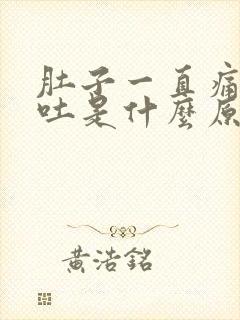 肚子一直痛
吐是什麼原
黃浩銘